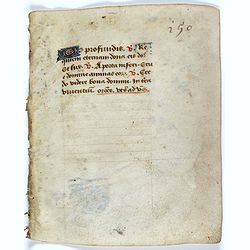 250
De profundis. V. Re
quiem eternam dona eis do
et lux. V. A porta inferi. Eru
e domine animas eorum. V. Cre
do videre bona domini. In terra
viventium.